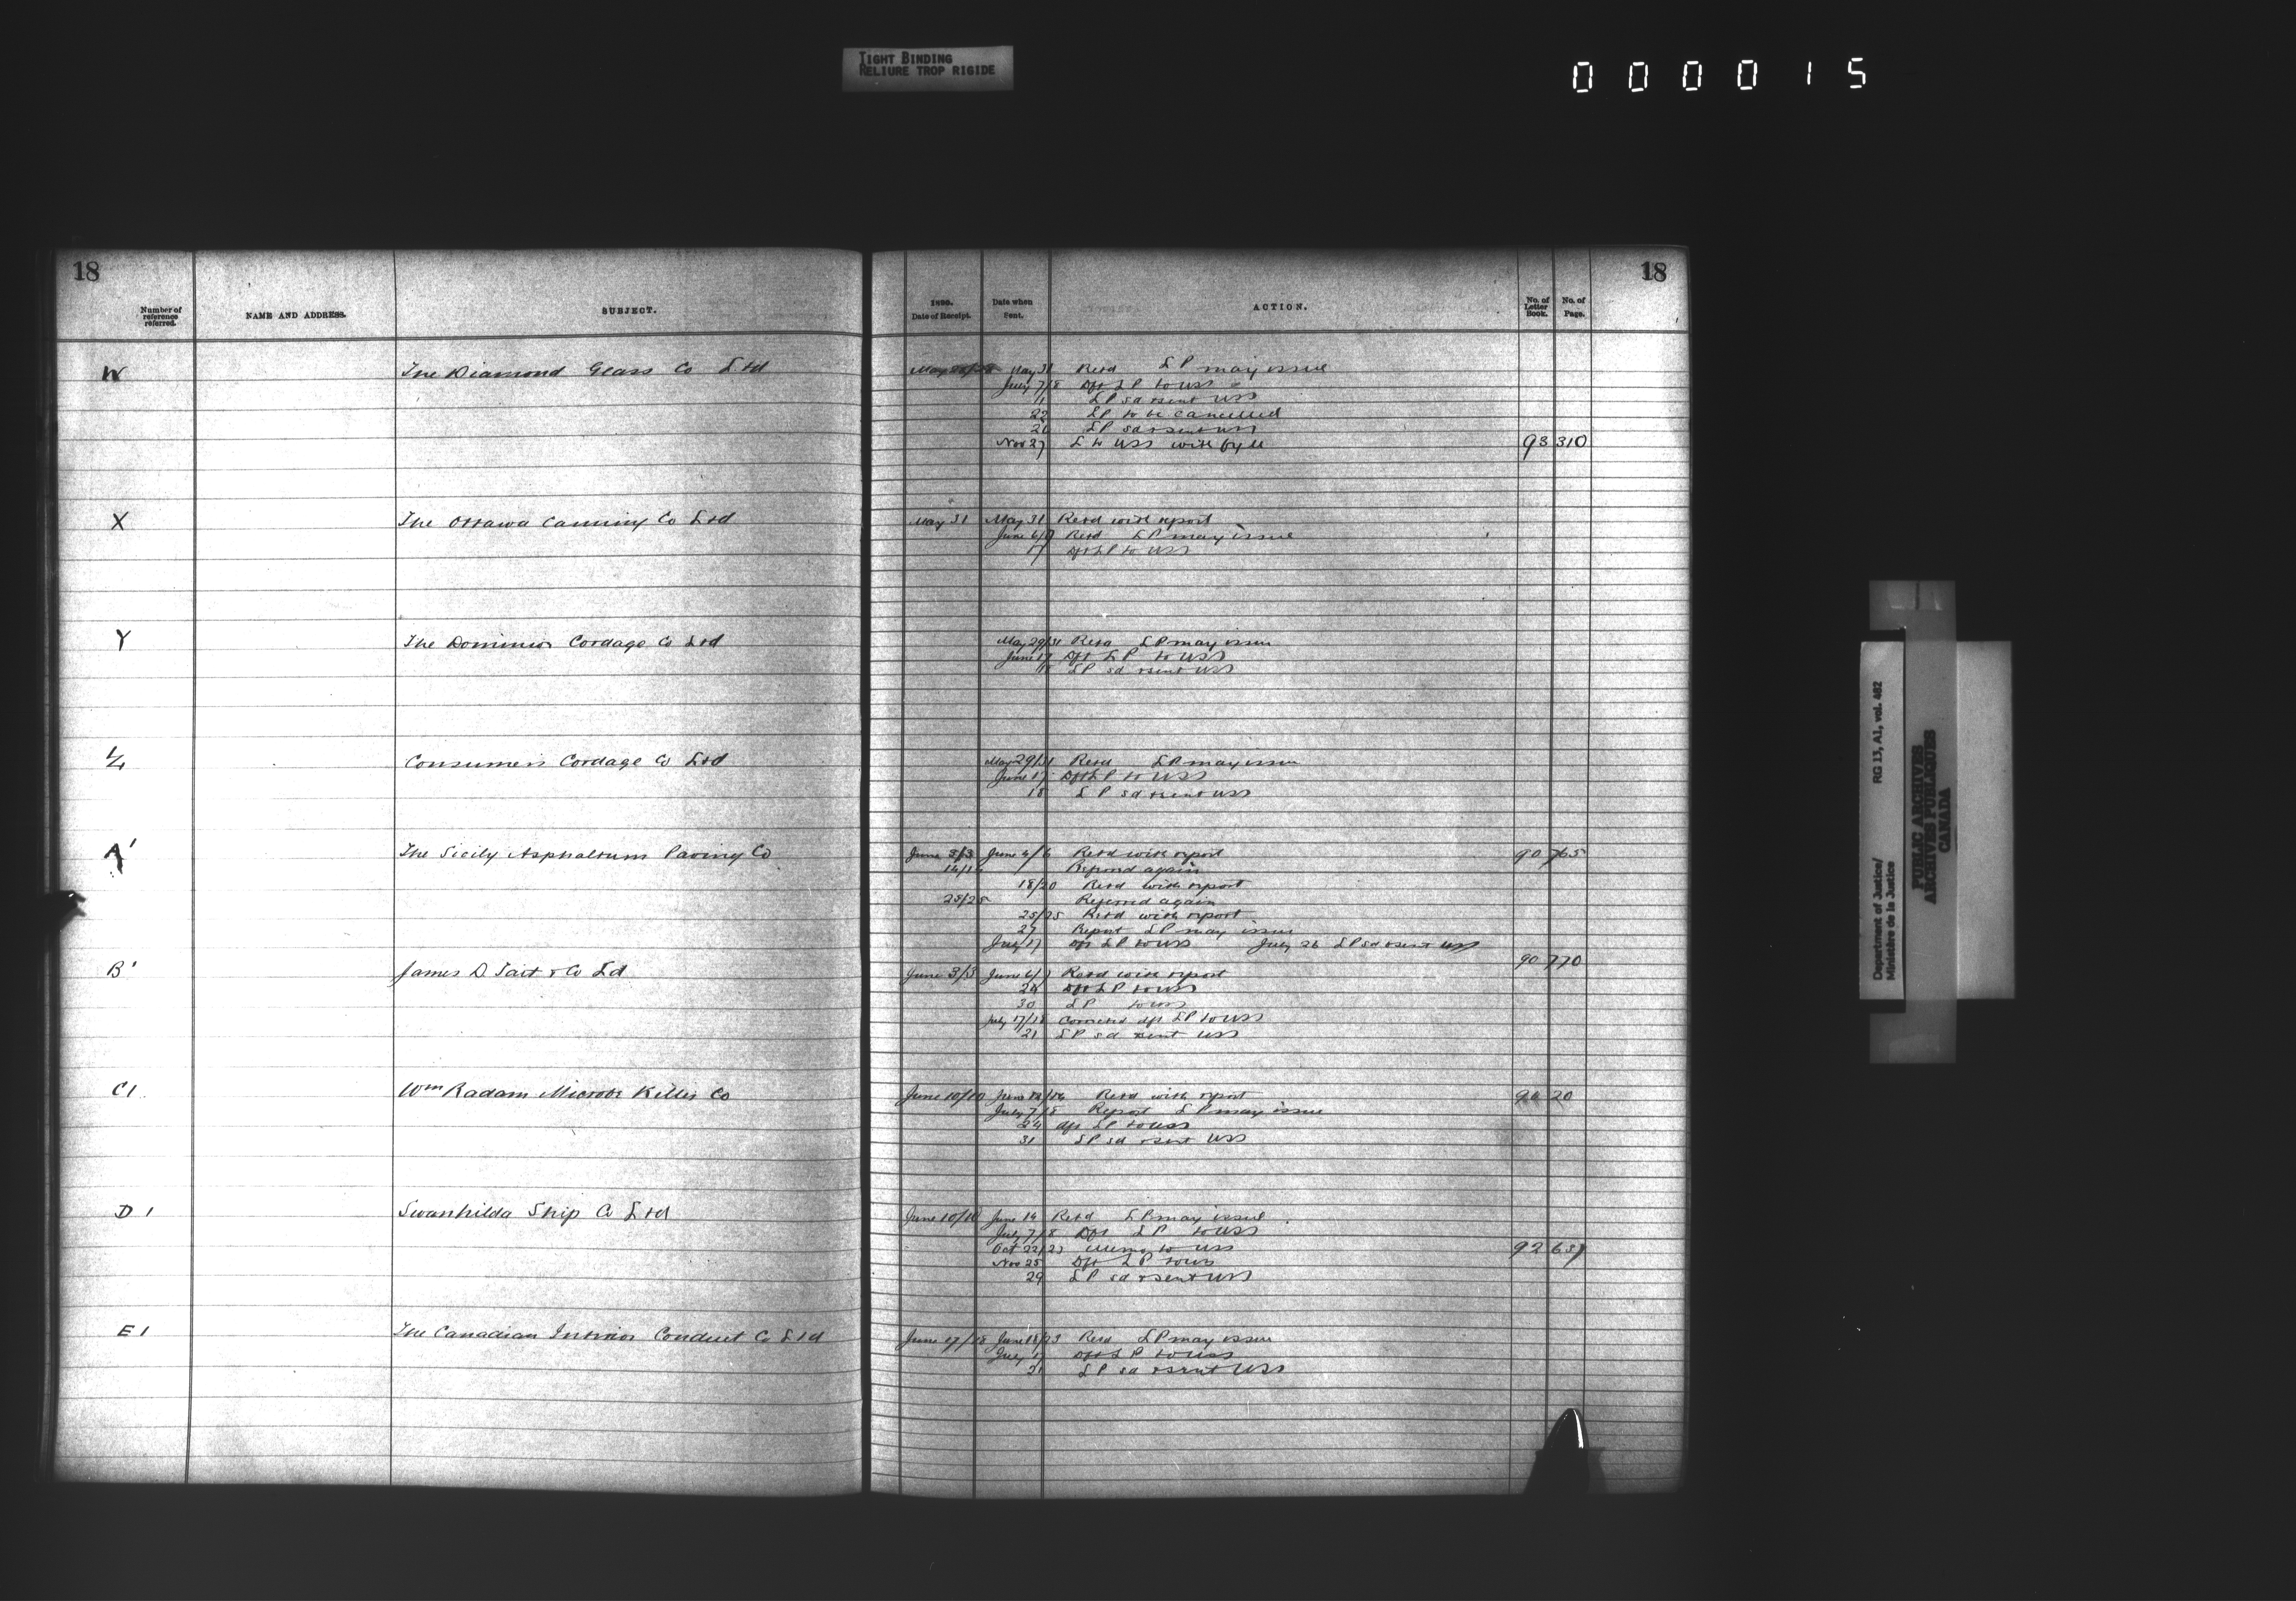 TIGHT BINDING
RELIURE TROP RIGIDE
000015
18
Number of reference referred.
NAME AND ADDRESS.
SUBJECT.
1890.
Date of Receipt.
Date when Sent.
ACTION.
No. of Letter Book.
No. of Page.
18
W The Diamond Glass Co Ltd May 31 Retd LP may issue
July 7/8 Dft LP to USS
11 LP sd & sent USS
22 LP to be cancelled
LP sd & sent USS
Nov 27 L to USS with fyle 93 310
X The Ottawa Canning Co Ltd May 31 May 31 Retd with report
June 6/7 Retd LP may issue
17 Dft LP to USS
Y The Dominion Cordage Co Ltd May 29/31 Retd LP may issue
June 17 Dft LP to USS
18 LP sd & sent USS
Z Consumers Cordage Co Ltd May 29/31 Retd LP may issue
June 17 Dft LP to USS
18 LP sd & sent USS
A' The Sicily Asphaltum Paving Co June 3/3 June 4/6 Retd with report 90 765
Referred again
18/20 Retd with report
25/25 Referred again
25/25 Retd with report
27 Report LP may issue
July 17 Dft LP to USS July 26 LP sd & sent USS
B' James D Tait & Co Ld June 3/3 June 6/7 Retd with report 90 770
24 Dft LP to USS
30 LP to USS
July 17/18 Corrected dft LP to USS
21 LP sd & sent USS
C1 Wm Radam Microbe Killer Co June 10/10 June Retd with report 20
July 7/8 Report LP may issue
24 dft LP to USS
31 LP sd & sent USS
D1 Swanhilda Ship Co Ltd June 10/10 June 14 Retd LP may issue
July 7/8 Dft LP to USS
Oct 22/23 Memo to USS 92 637
Nov 25 Dft LP to USS
29 LP sd & sent USS
E1 The Canadian Interior Conduit Co Ltd June 17/18 June 18/23 Retd LP may issue
July 17 Dft LP to USS
21 LP sd & sent USS
Department of Justice/ RG 13, A1, vol. 482
Ministère de la Justice
PUBLIC ARCHIVES
ARCHIVES PUBLIQUES
CANADA